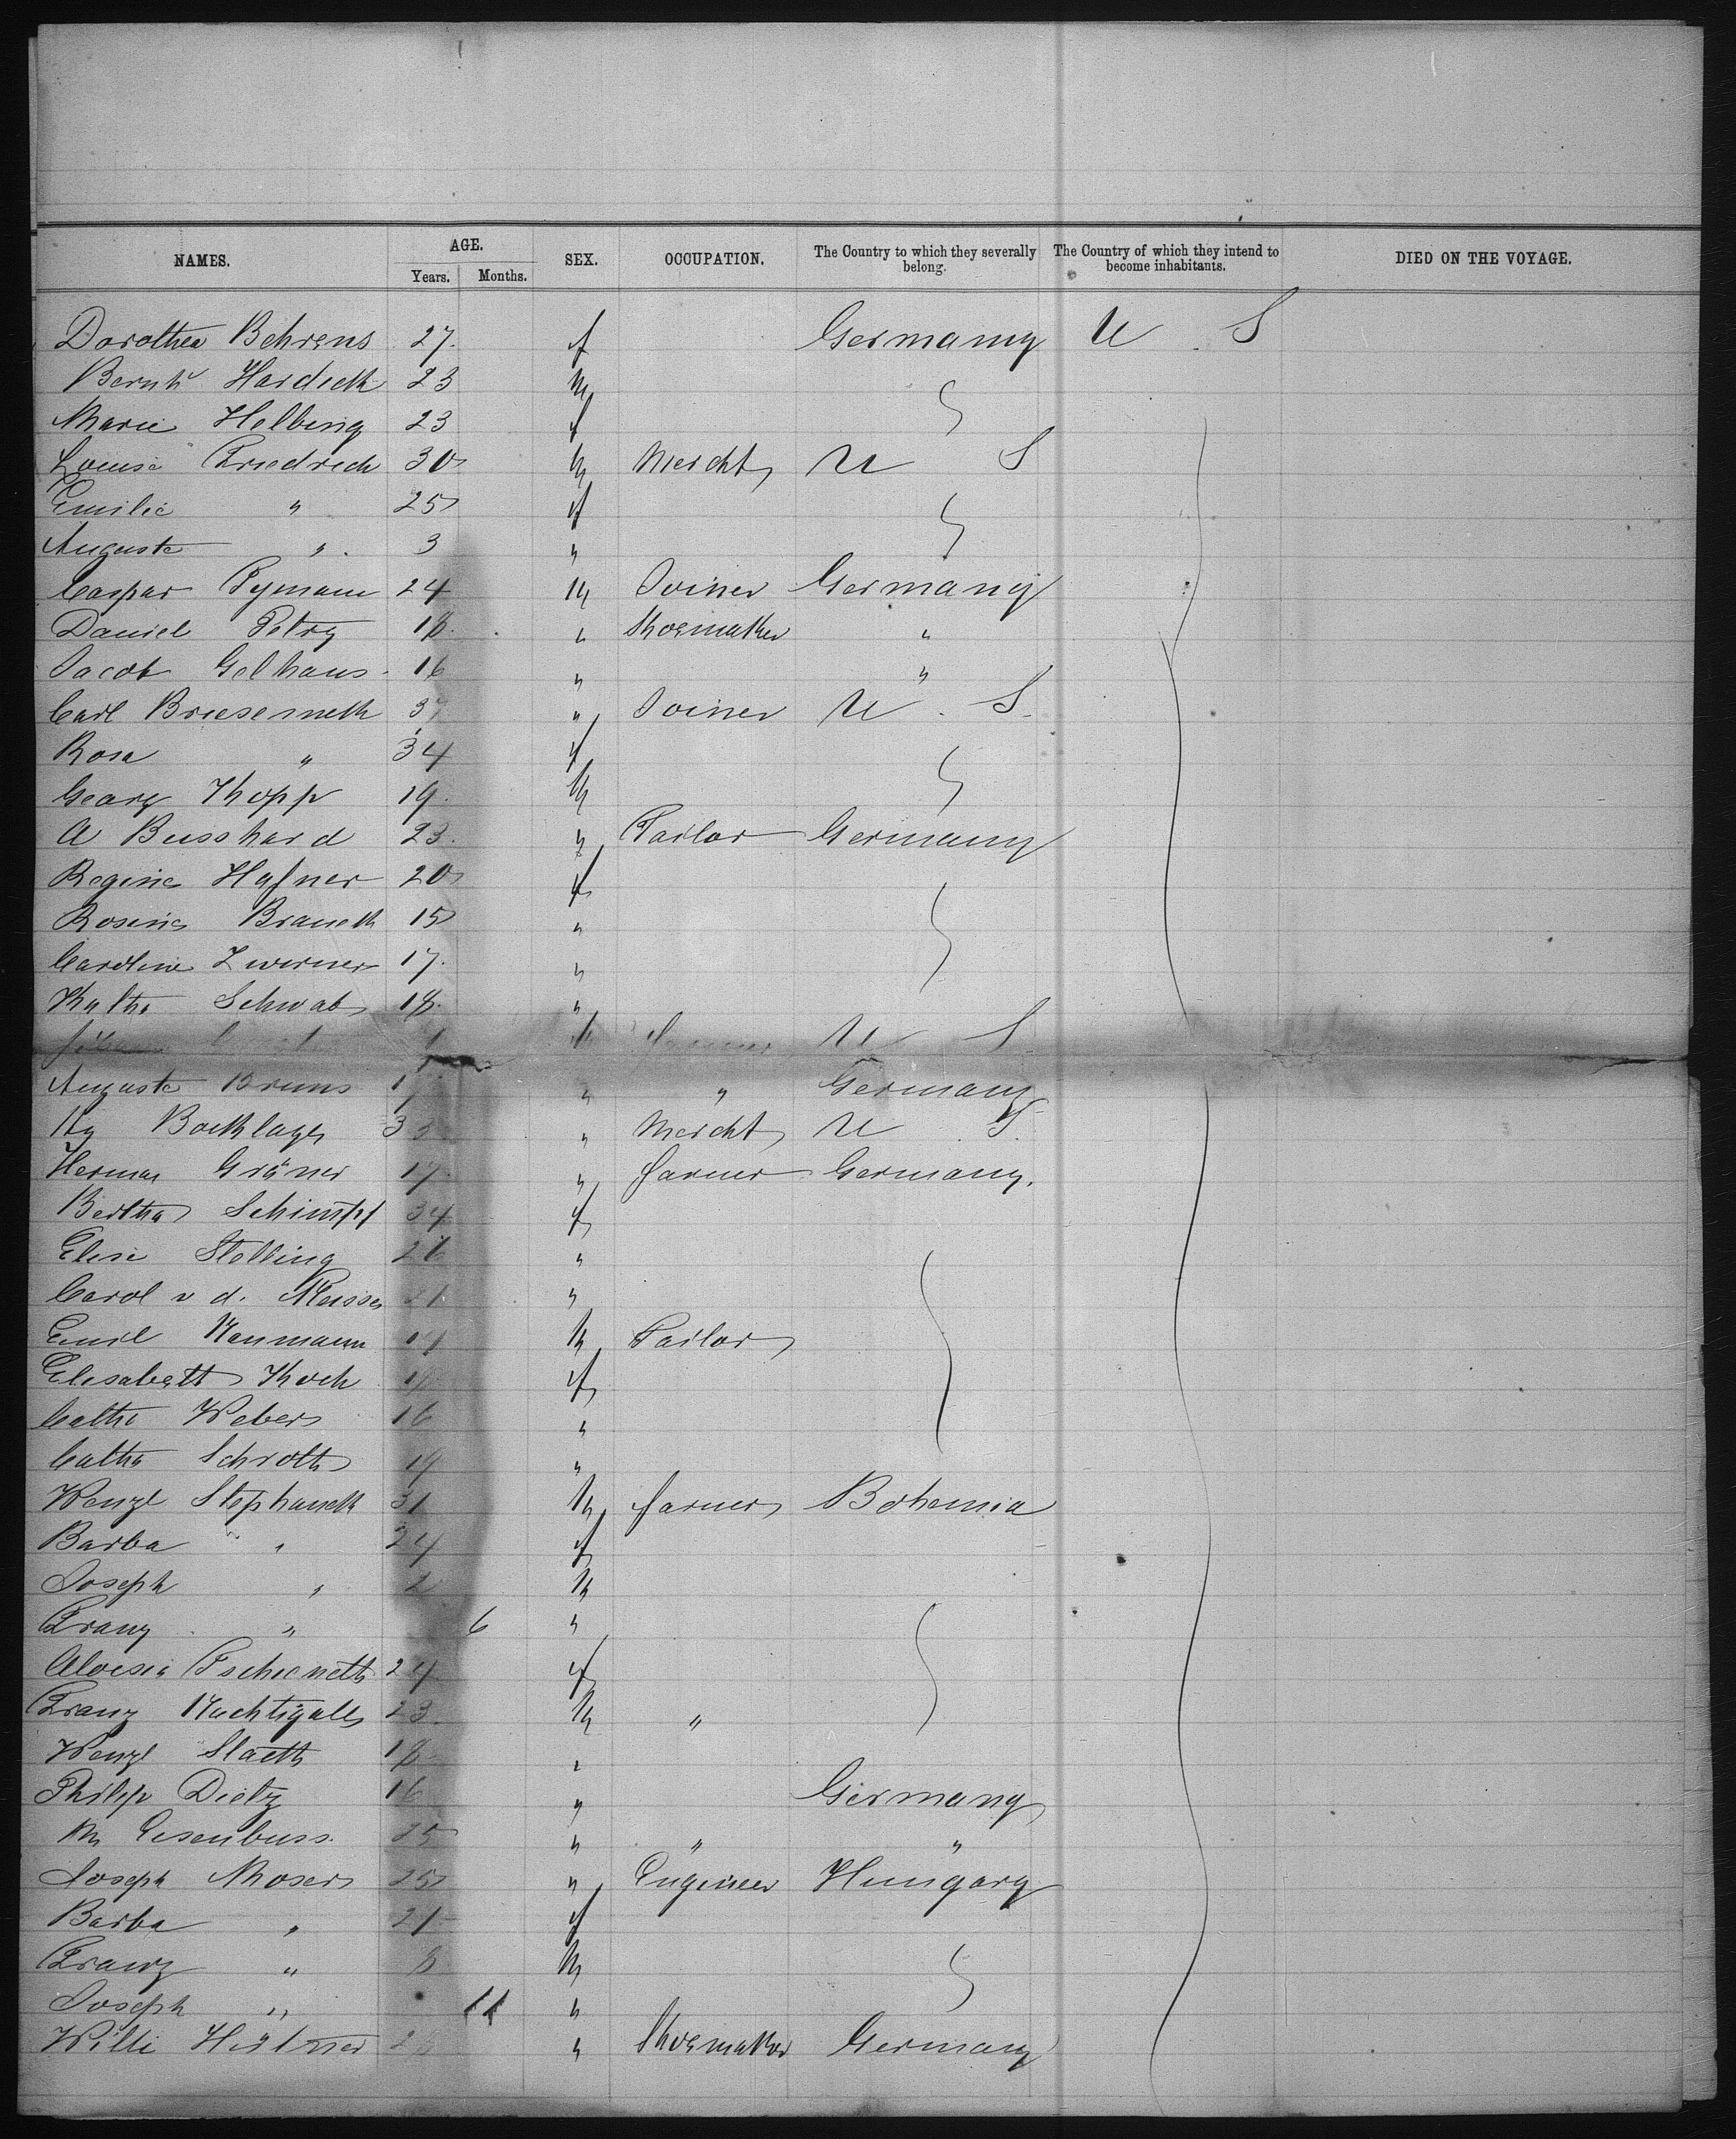 NAMES. AGE. SEX. OCCUPATION. The Country to which they severally belong. The Country of which they intend to become inhabitants. DIED ON THE VOYAGE.
Years. Months.
Dorothea Behrens 27 f Germany U S
Bernh Hardeck 23 m
Marie Helbing 23 f
Louise Friedrich 30 m Mercht U S
Emilie " 25 f
Auguste " 3 "
Caspar Tymann 24 m Joiner Germany
Daniel Petry 18 " Shoemaker "
Jacob Gelhaus 16 " "
Carl Briesemeth 37 " Joiner U S
Rosa " 34 f
Georg Kopp 19 m
A Busshard 23 " Tailor Germany
Regine Hafner 20 f
Rosina Braueth 15 "
Caroline Zwerner 17 "
Kathe Schwab 18 "
U S
Auguste Bruns " " Germany
Hy Bocklage 33 " Mercht U S
Herman Gräner 17 " farmer Germany.
Bertha Schimpf 34 f
Elise Stelling 21 "
Carol v d. 21 "
Emil Neumann m Tailor
Elisabeth Koch 18 f
Cathe Weber 16 "
Catha Schroth 19 "
Wenzl Stephaneck 31 m farmer Bohemia
Barba " 24 f
Joseph " 2 m
Franz " 6 "
Aloisia 24 f
Franz Nachtigall 23 m "
Wenzl Slaeth 18 "
Philip Dietz 16 " Germany
M Eisenbuss 25 " " "
Joseph Moser 25 " Engineer Hungary
Barba " 21 f
Franz " m
Joseph " 11 "
Willi " Shoemaker Germany